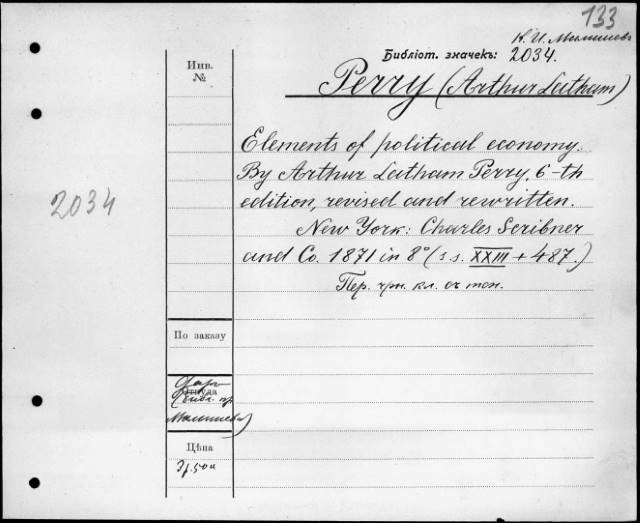 133
К. И. Малышевъ
Инв. №
Библіот. значекъ: 2034.
Perry (Arthur Latham)
Elements of political economy.
By Arthur Latham Perry, 6-th
edition, revised and rewritten.
2034
New York: Charles Scribner
and Co. 1871 in 8° (s. s. XXIII + 487.)
Пер. чрн. кл. съ тон.
По заказу
Откуда
Малышева)
Цѣна
3 50